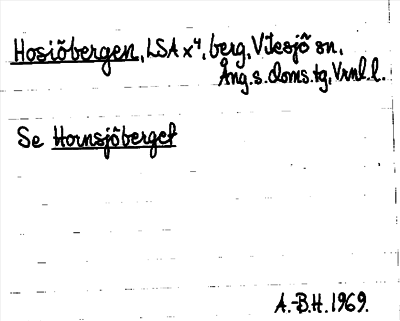 Hosiöbergen, LSA x⁴, berg, V. Tesjö sn,
Ång. s. doms. tg, Vrnl. l.
Se Hornsjöberget
A.-B.H. 1969.